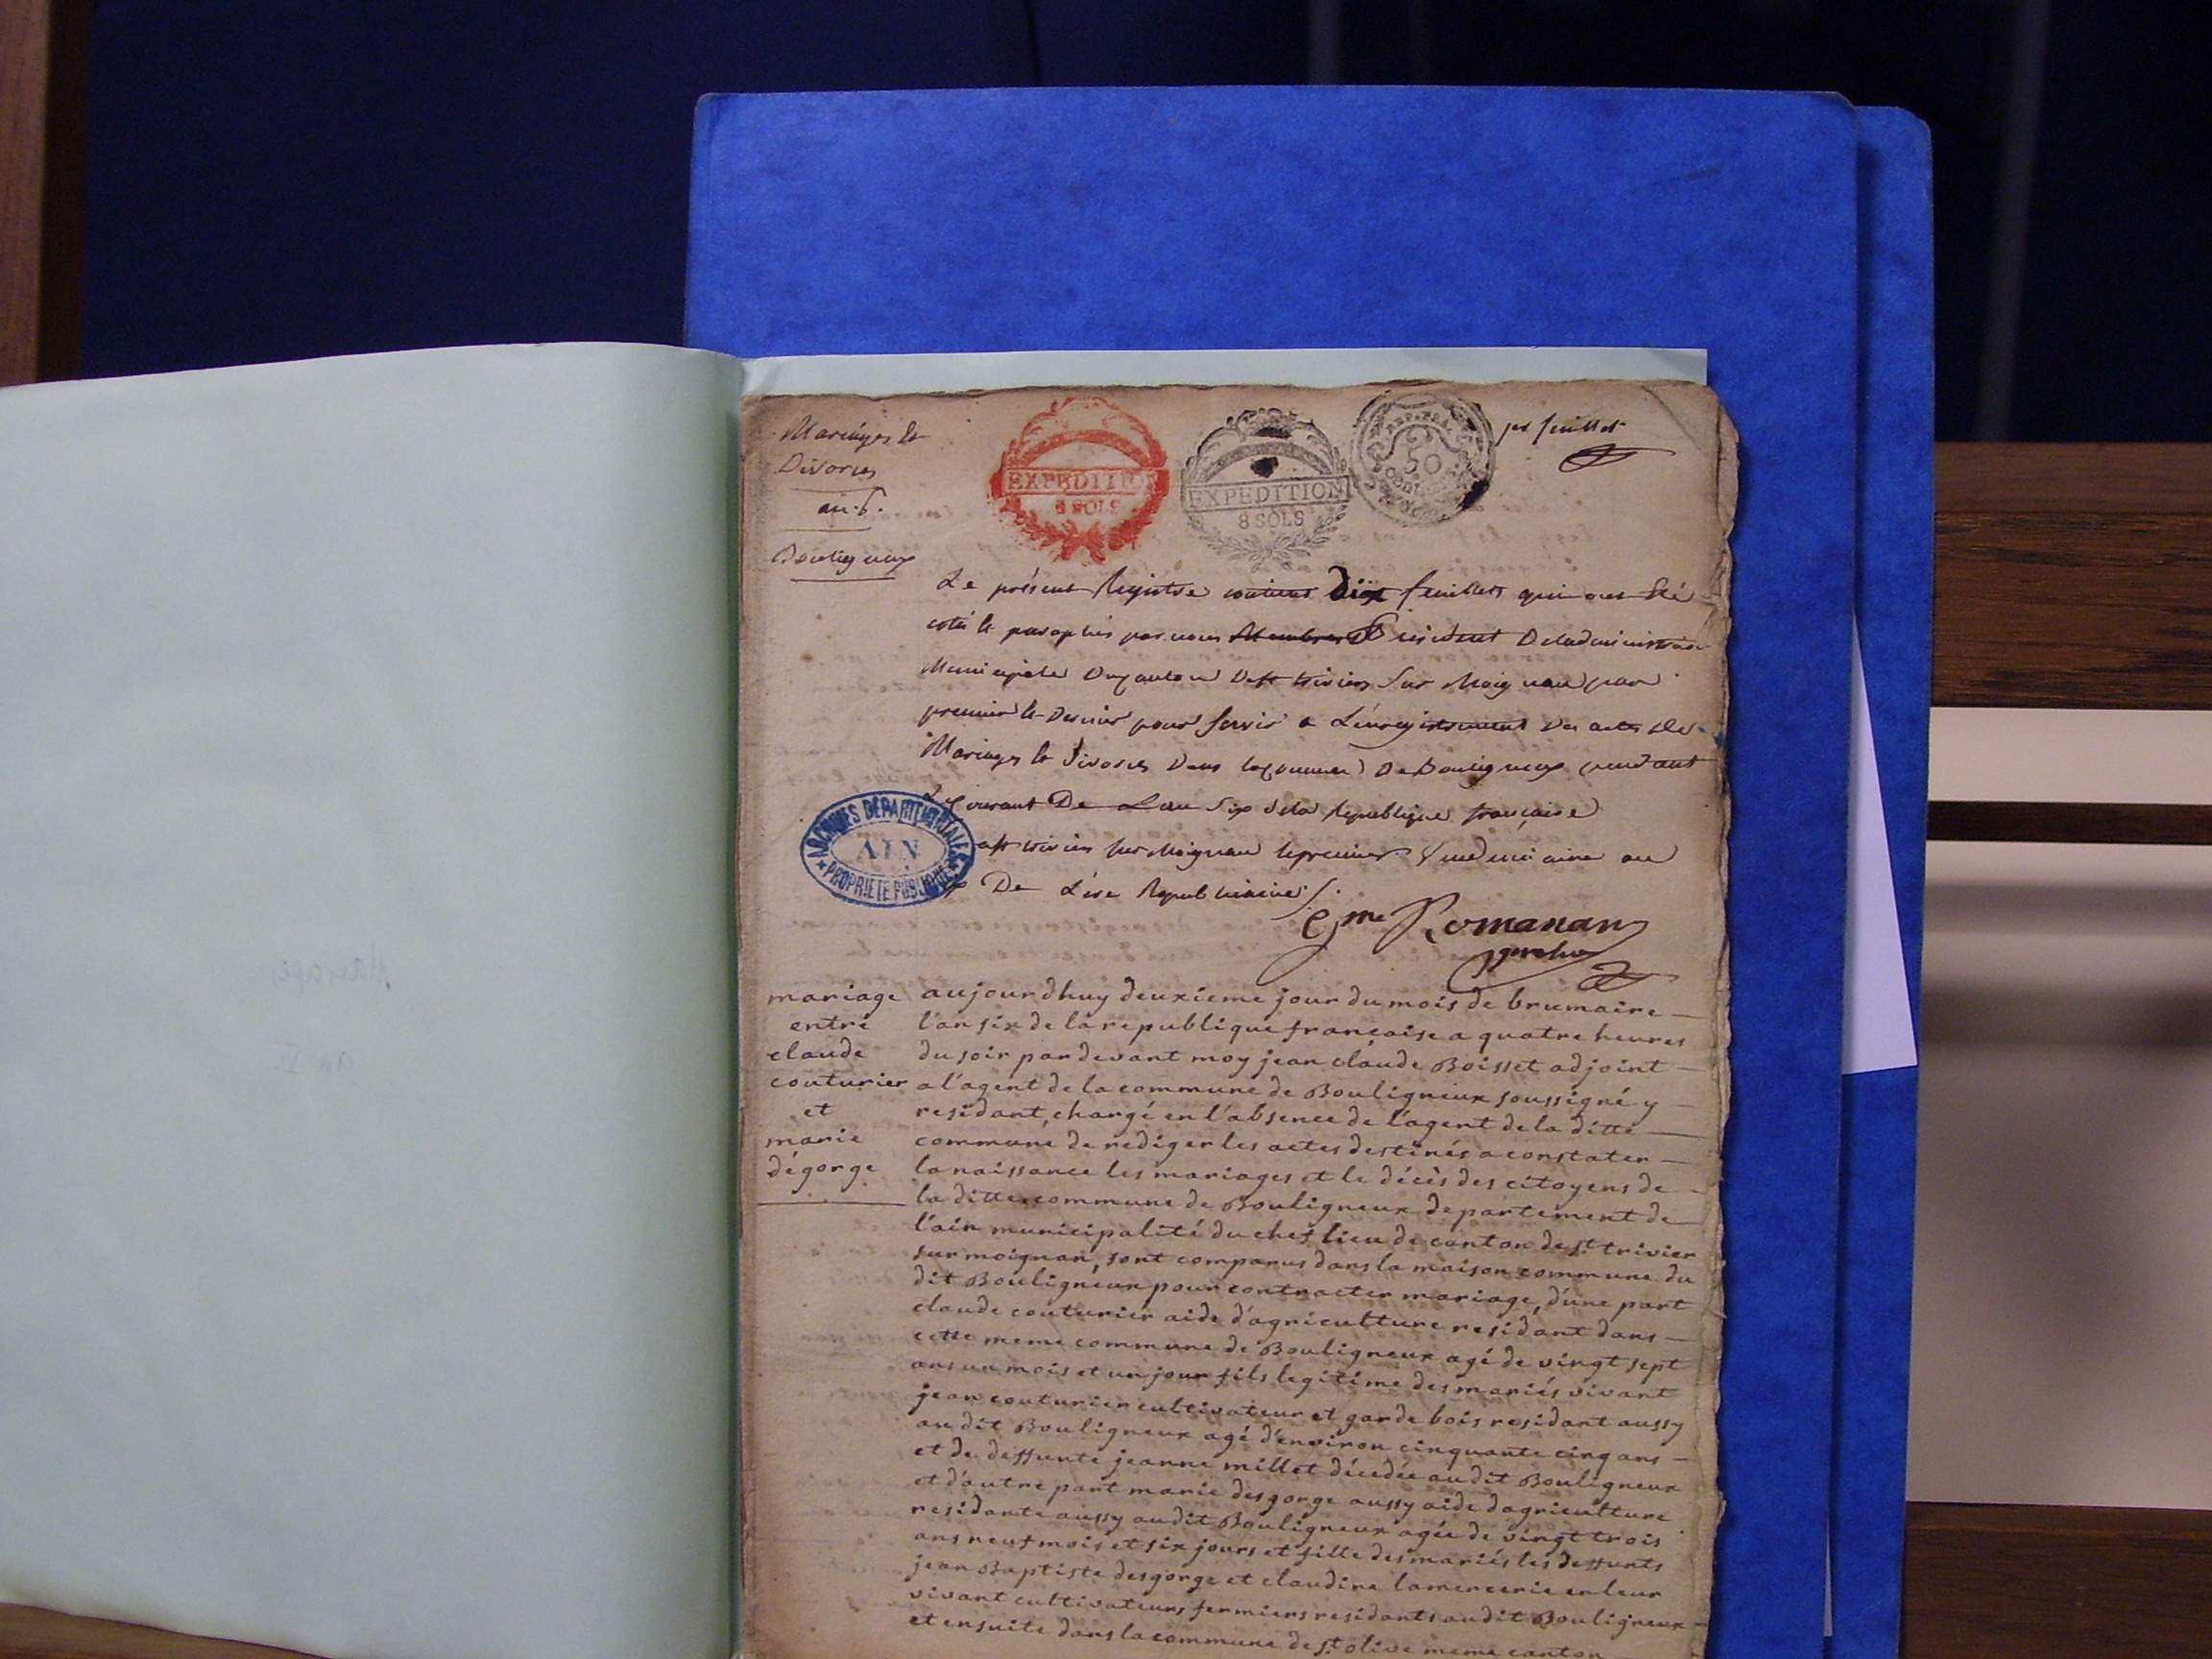 Mariages et
Divorces
an 6.
Bouligneux
EXPEDITION
8 SOLS
EXPEDITION
8 SOLS
50
per feuillet
Le présent Registre contient dix feuillets qui ont été
coté et paraphés par nous Membre President De Ladministration
Municipale Du Canton De St trivier Sur Moignan par
premier et Dernier pour servir a L'enregistrement Des actes De
Mariages et Divorces Dans la Commune De Bouligneux pendant
Le Courant De L'an Six De la Republique française
a St trivier sur Moignan le premier Vendemiaire an
De L'ére Republicaine
Romanan
ARCHIVES DÉPARTEMENTALES
AIN
PROPRIÉTÉ PUBLIQUE
mariage
entre
claude
couturier
et
marie
dégorge
aujourdhuy deuxieme jour du mois de brumaire
l'an six de la republique francaise a quatre heures
du soir par devant moy jean claude Boisset adjoint
a l'agent de la commune de Bouligneux soussigné y
residant, chargé en l'absence de l'agent de la ditte
commune de rediger les actes destinés a constater
la naissance les mariages et le décès des citoyens de
la ditte commune de Bouligneux departement de
l'ain municipalité du chef lieu de canton de st trivier
sur moignan, sont comparus dans la maison commune du
dit Bouligneux pour contracter mariage, d'une part
claude couturier aide d'agriculture residant dans
cette meme commune de Bouligneux agé de vingt sept
ans un mois et un jour fils legitime des mariés vivant
jean couturier cultivateur et garde bois residant aussy
au dit Bouligneux agé d'environ cinquante cinq ans
et de deffunte jeanne millet décedée au dit Bouligneux
et d'autre part marie desgorge aussy aide dagriculture
residante aussy audit Bouligneux agée de vingt trois
ans neuf mois et six jours et fille des mariés les deffunts
jean Baptiste desgorge et claudine lamercerie en leur
vivant cultivateurs fermiers residants audit Bouligneux
et ensuite dans la commune de st olive meme canton